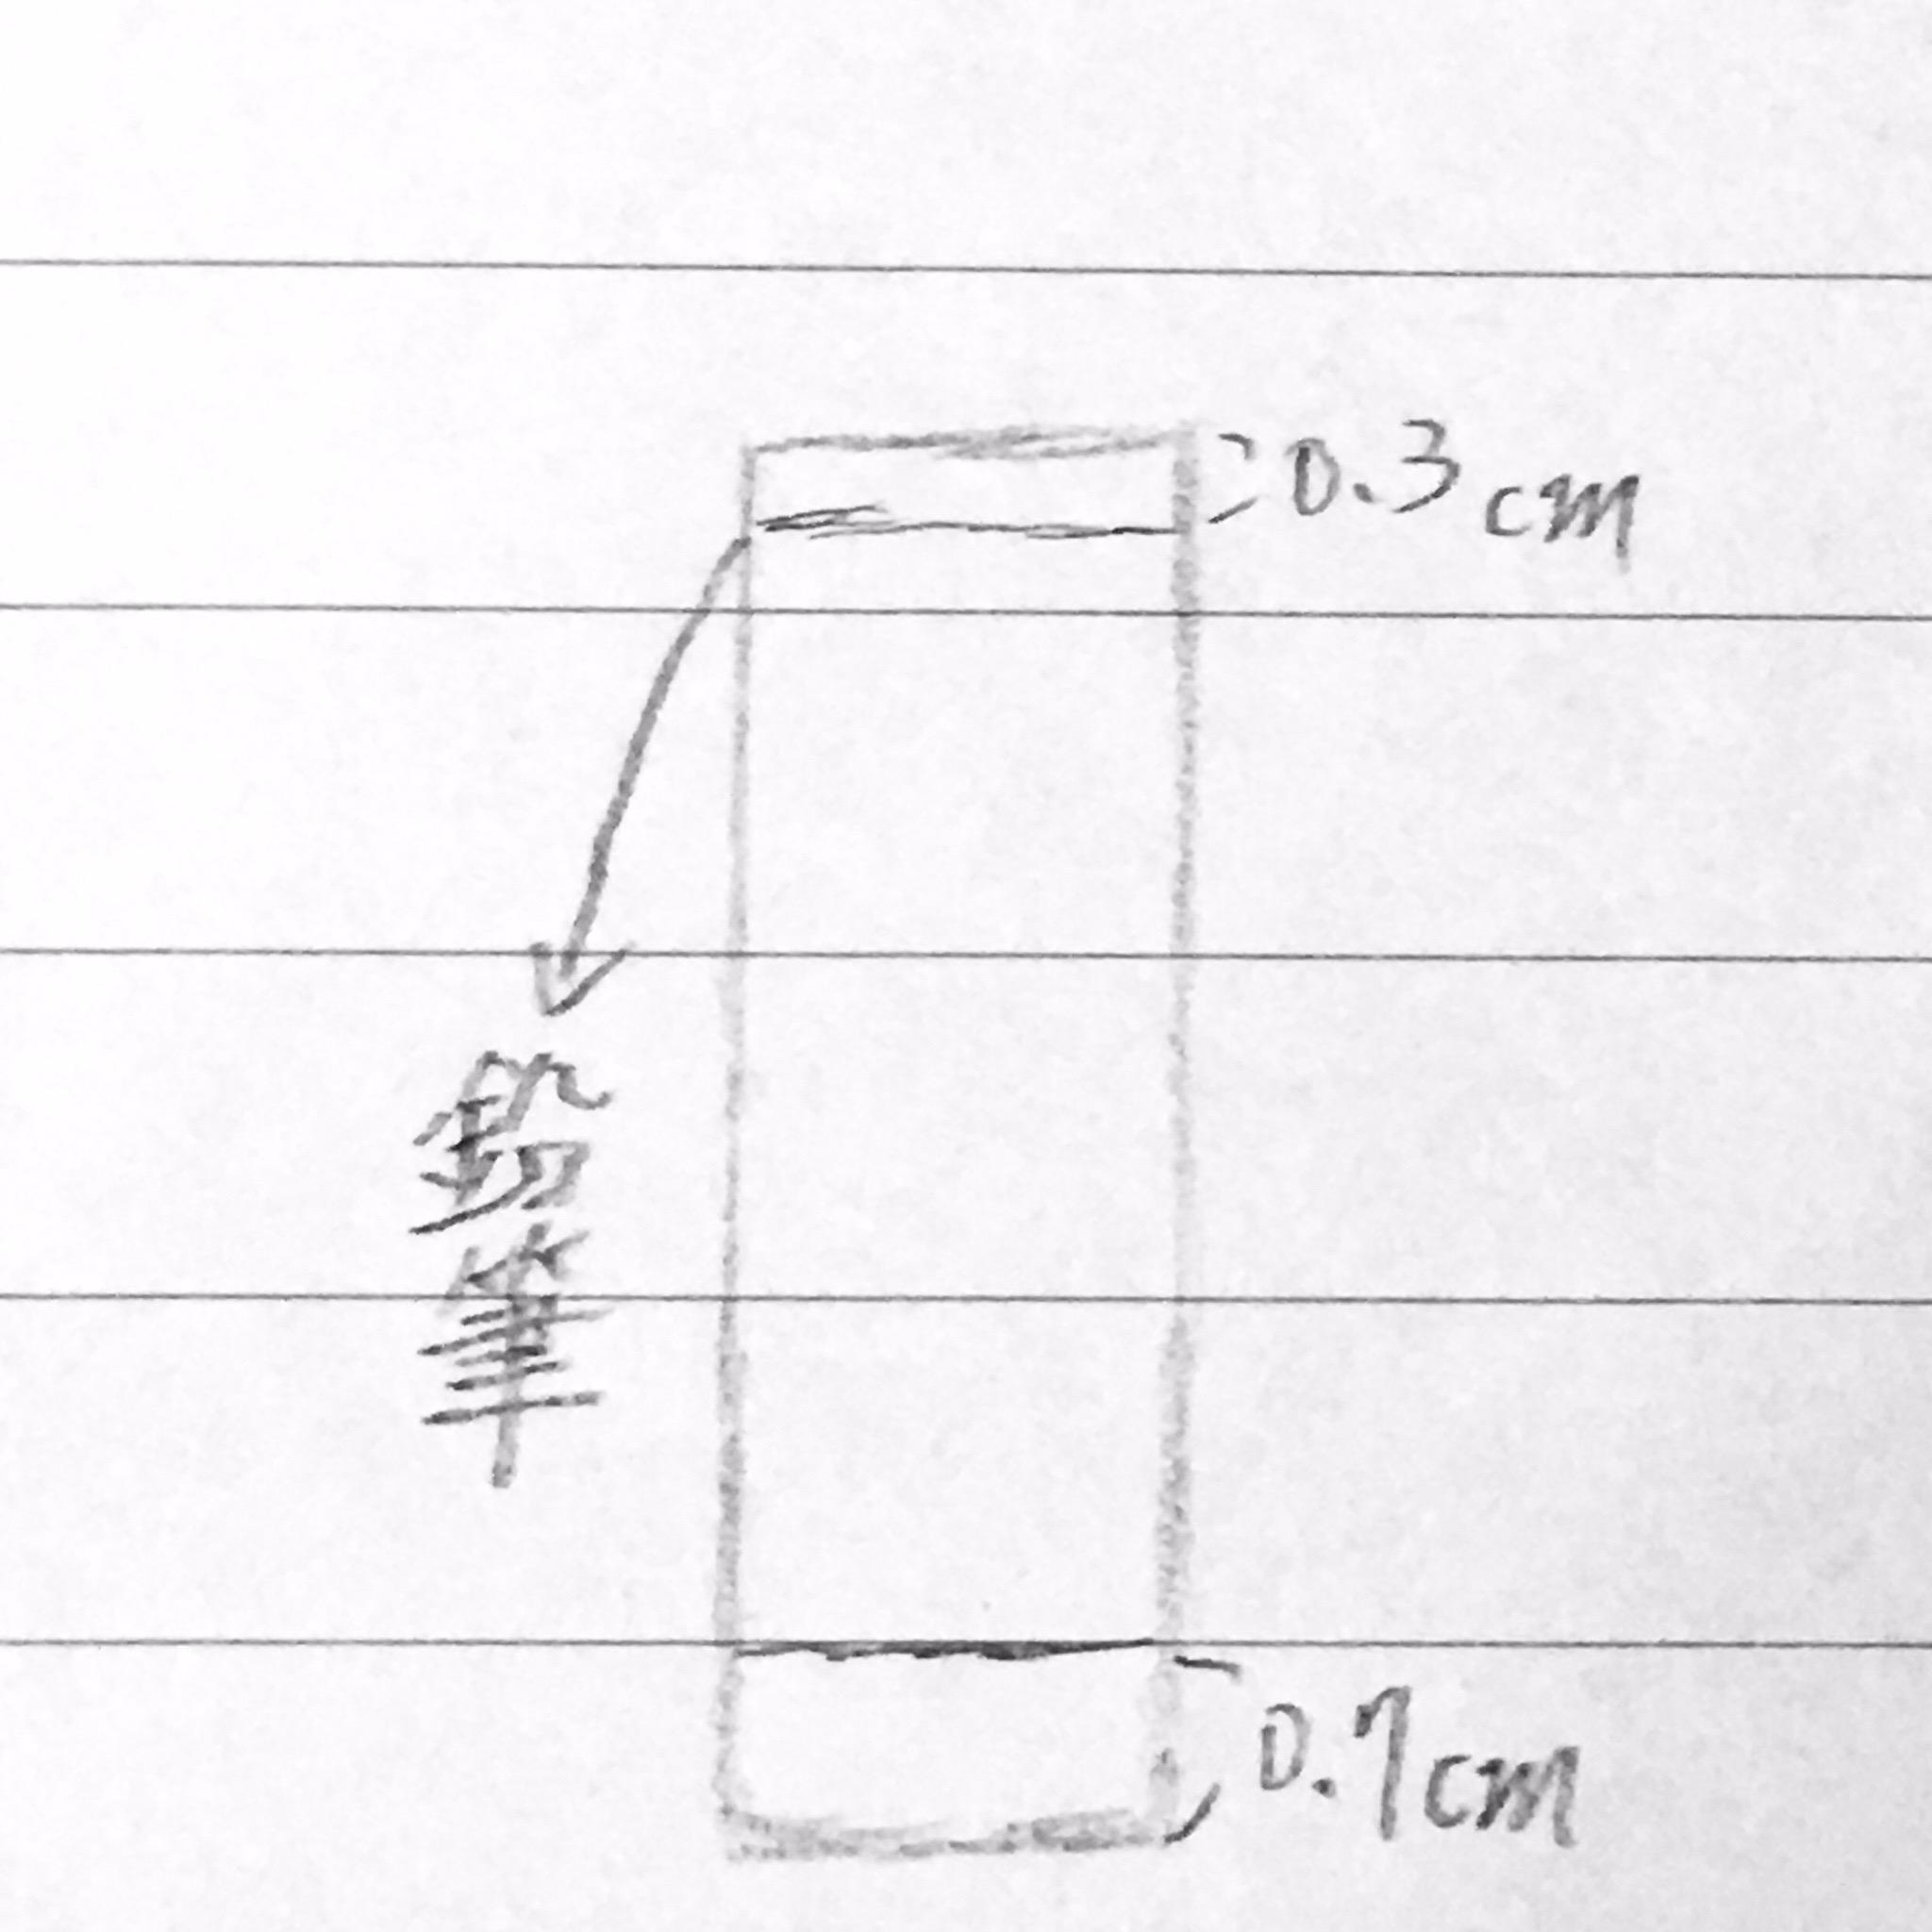 0.3cm
鉛筆
0.7cm